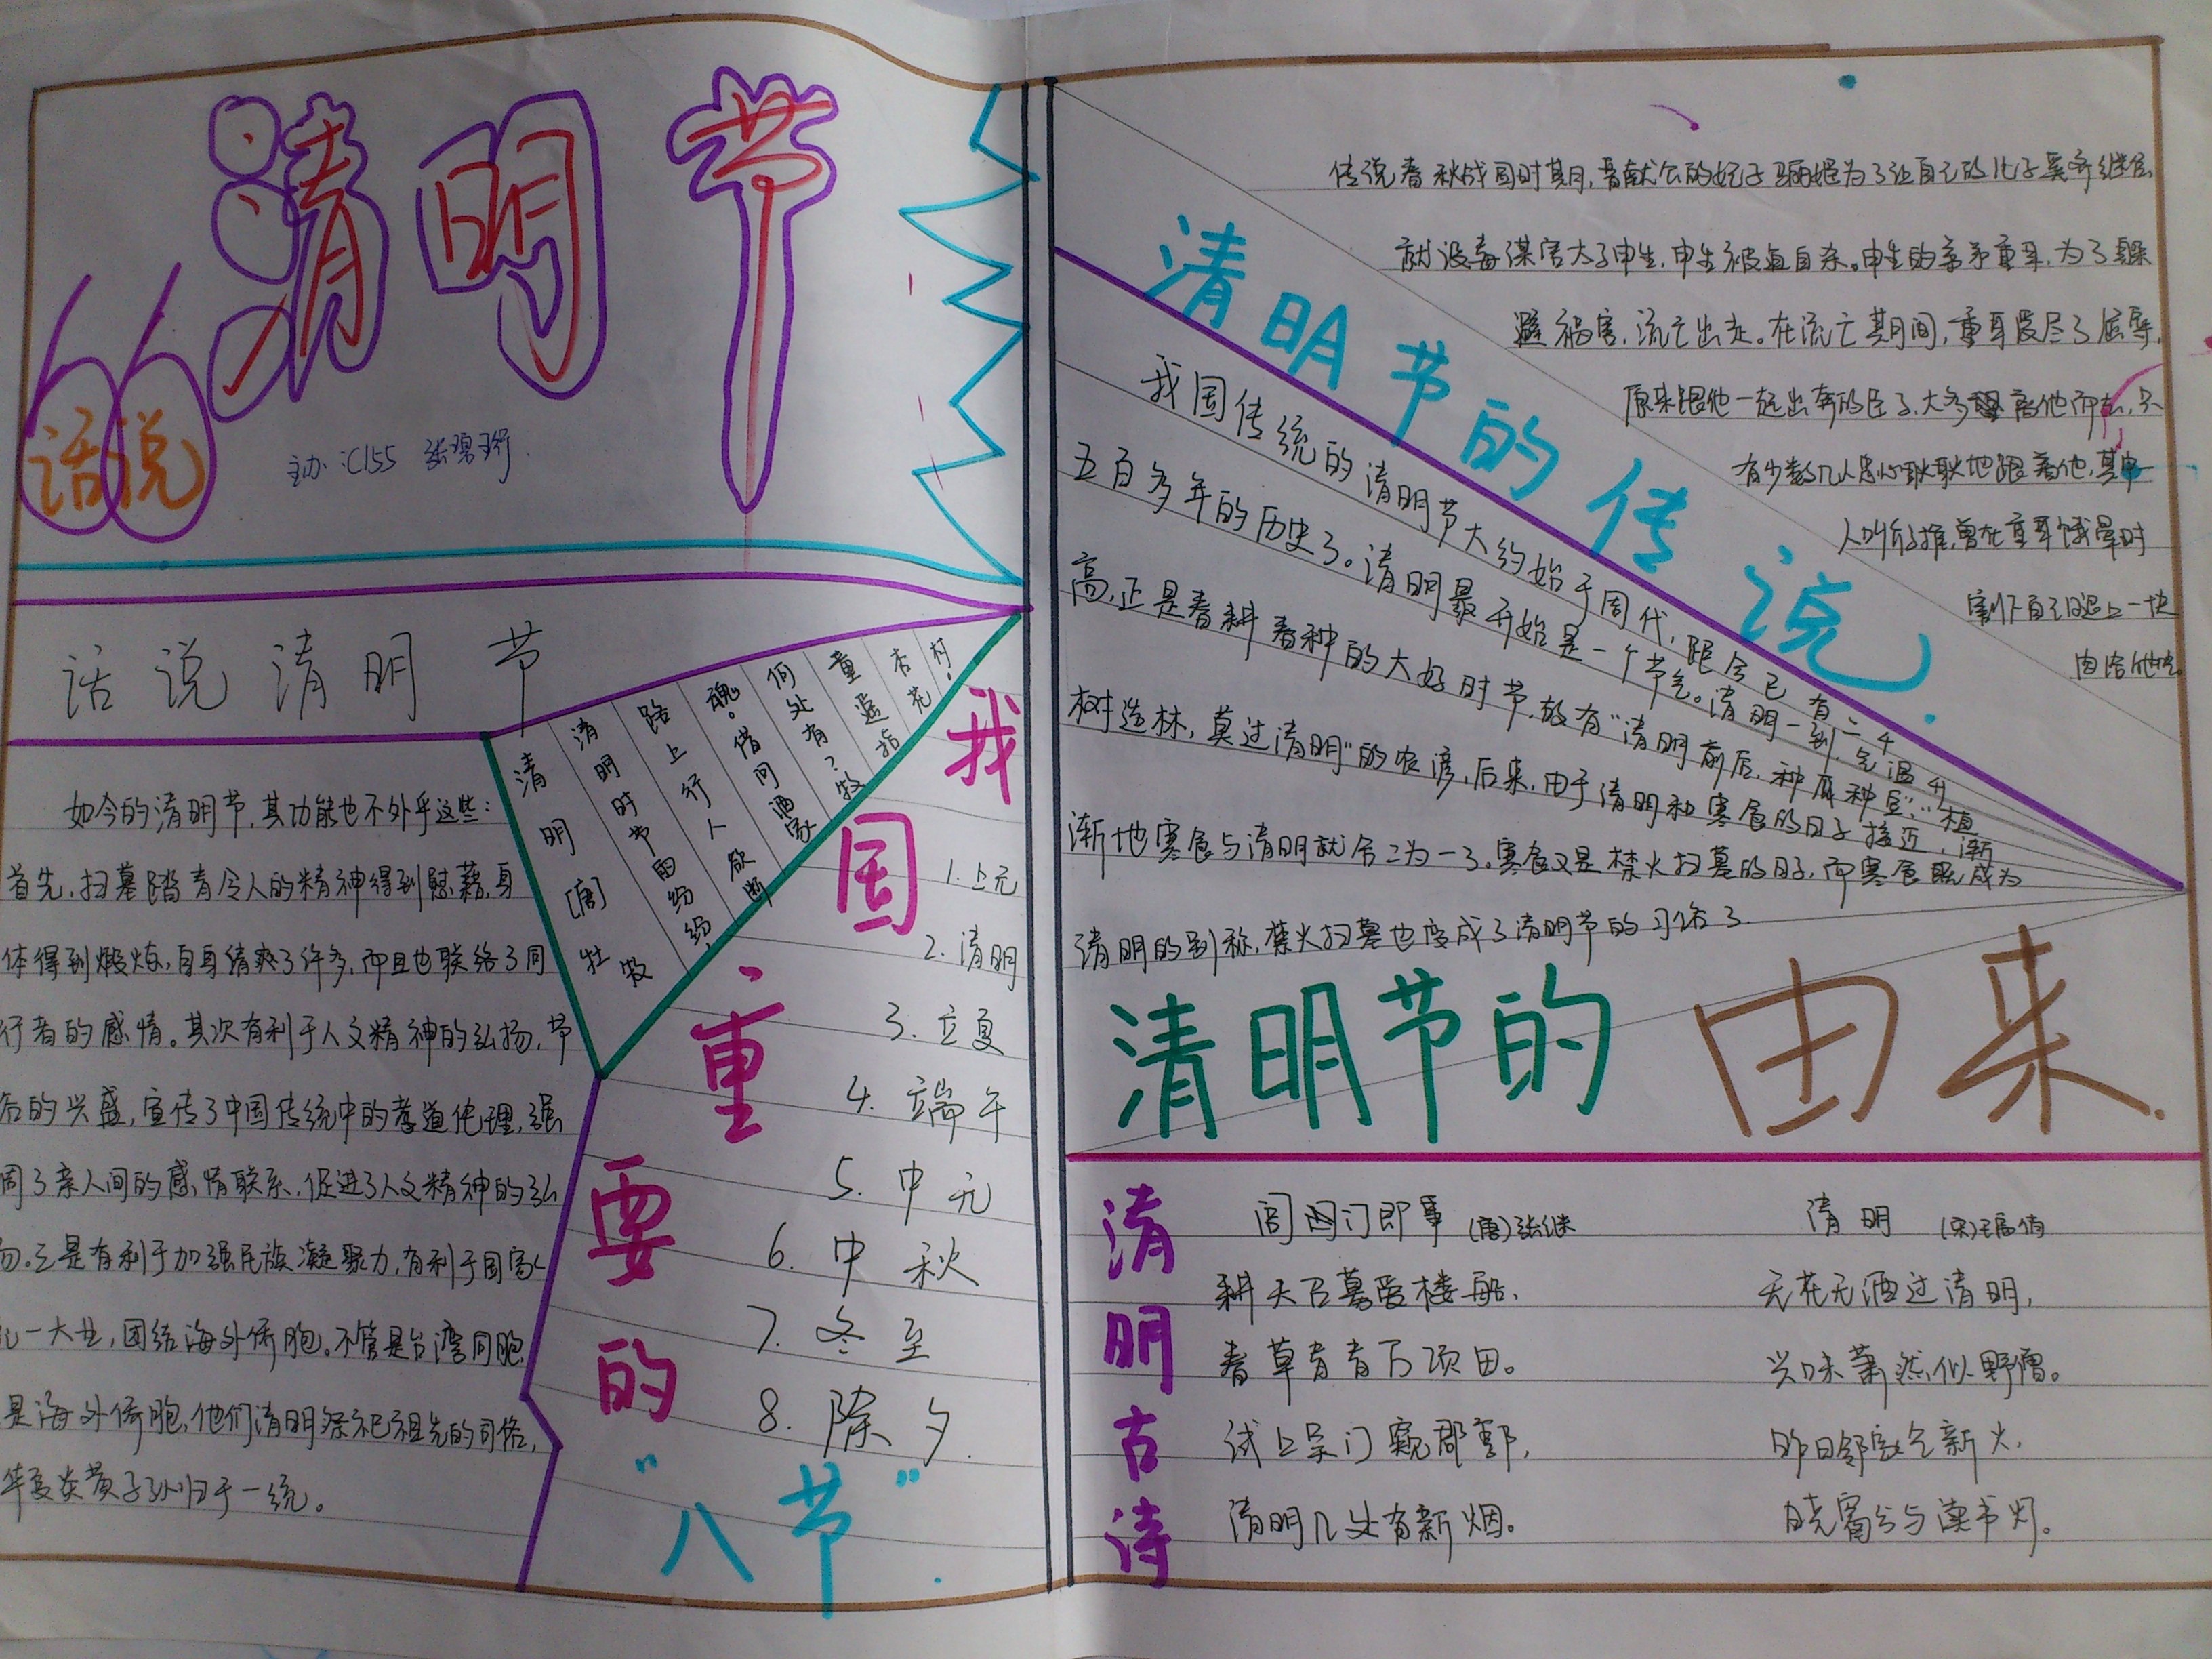 话说
清明节
主办:C155 张
话说清明节
如今的清明节,其功能也不外乎这些:
首先,扫墓踏青令人的精神得到慰藉,身
体得到煅炼,自身清爽了许多,而且也联络了同
行者的感情。其次有利于人文精神的弘扬,节
的兴盛,宣传了中国传统中的孝道伦理,强
了亲人间的感情联系,促进了人文精神的弘
三是有利于加强民族凝聚力,有利于国家
一大业,团结海外侨胞。不管是台湾同胞
是海外侨胞,他们清明祭祀祖先的习俗,
华夏炎黄子孙归于一统。
清明[唐]杜牧
清明时节雨纷纷,
路上行人欲断
魂。借问酒家
何处有?牧
童遥指
杏花
村!
我国重要的
"八节"
1.上元
2.清明
3.立夏
4.端午
5.中元
6.中秋
7.冬至
8.除夕.
清明节的传说
传说春秋战国时其月,晋献公的妃子骊姬为了让自己的儿子奚齐继位
就设毒谋害太子申生,申生被逼自杀。申生的弟弟重耳,为了躲
避祸害,流亡出走。在流亡其月间,重耳受尽了屈辱.
原来跟他一起出奔的臣子,大多 离他而去,只
有少数几人忠心耿耿地跟着他,其中一
人叫介子推,曾在重耳饿晕时
割下自己腿上一块
肉给他吃。
我国传统的清明节大约始于周代,距今已有二千
五百多年的历史了。清明最开始是一个节气。清明一到,气温升
高,正是春耕春种的大好时节,故有"清明前后,种瓜种豆";"植
树造林,莫过清明"的农谚,后来,由于清明和寒食的日子接近,渐
渐地寒食与清明就合二为一了。寒食又是禁火扫墓的日子,而寒食既成为
清明的别称,禁火扫墓也变成了清明节的习俗了.
清明节的由来.
清明古诗
阊门即事 (唐)张继
耕夫召募爱楼船,
春草青青万项田。
试上吴门窥郡郭,
清明几处有新烟。
清明 (宋)王禹偁
无花无酒过清明,
兴味萧然似野僧。
昨日邻家乞新火,
晓窗分与读书灯。